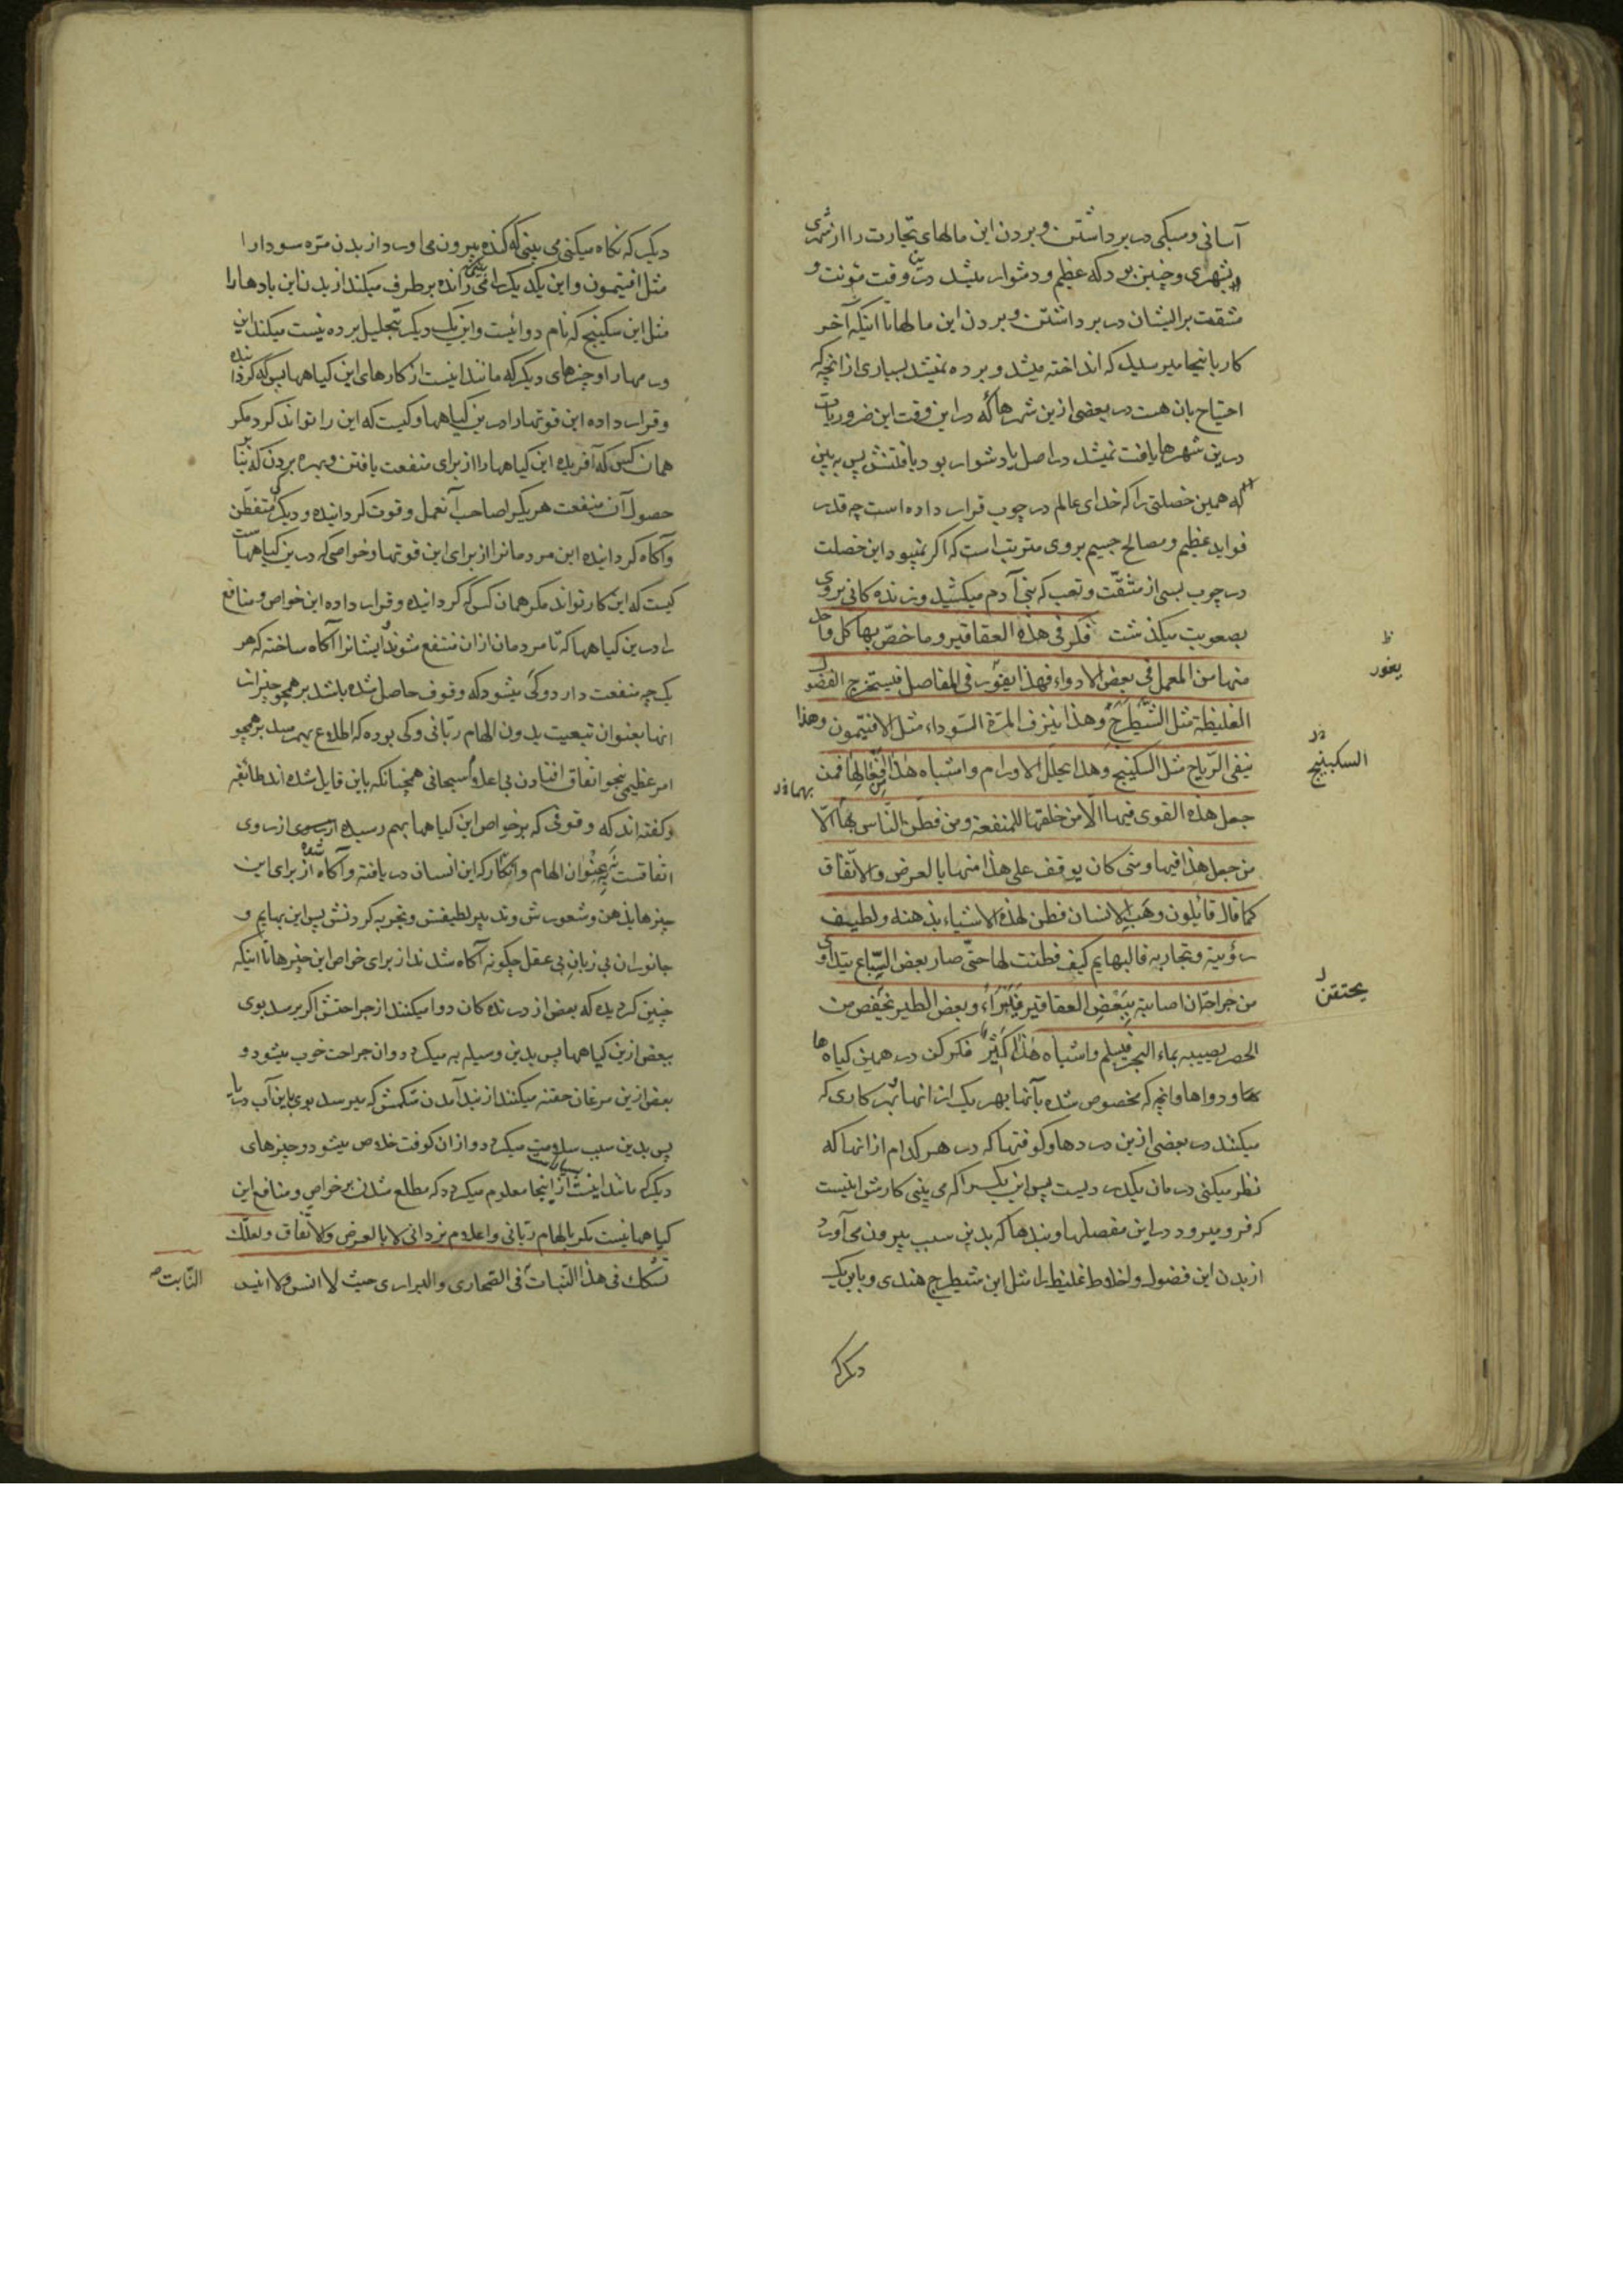 آسانی و سبکی در برداشتن و بردن این مالهای تجارت را از شهری
بشهری و چنین بود که عظیم و دشوار میشد درین وقت مؤنت و
مشقت بر ایشان در برداشتن و بردن این مالها تا اینکه آخر
کار باینجا میرسید که انداخته میشد و برده نمیشد بسیاری از انچه که
احتیاج بان هست در بعضی ازین شهرها که در این وقت این ضروریات
درین شهرها یافت نمیشد در اصل یا دشوار بود یافتنش پس به بین
که همین خصلتی را که خدای عالم در چوب قرار داده است چه قدر
فواید عظیم و مصالح جسیم بروی مترتب است که اگر نمیبود این خصلت
در چوب بسی از مشقّت و تعب که بنی آدم میکشید و زندگانی بروی
بصعوبت میگذشت فکر فی هذه العقاقیر و ما خصّ بها کل واحد
منها من العمل فی بعض الادواء فهذا یغور فی المفاصل فیستخرج الفضول
الغلیظة مثل الشّیطرج وهذا ینزف المرّة السّوداء مثل الافتیمون وهذا
ینفی الرّیاح مثل السکبینج وهذا یحلل الاورام واشباه هذا من افعالها فمن
جعل هذه القوی فیها الّا من خلقها للمنفعة ومن فطّن النّاس بها الّا
من جعل هذا فیها ومتی کان یوقف علی هذا منها بالعرض والاتّفاق
کما قال قائلون وهب الانسان فطن لهذه الاشیاء بذهنه ولطیف
رؤیته وتجاربه فالبهایم کیف فطنت لها حتّی صار بعض السّباع یتداوی
من جراحة ان اصابته ببعض العقاقیر فیبرأ وبعض الطیر یحقن من
الحصر یصیبه بماء البحر فیسلم واشباه هذا کثیر فکر کن در همین کیاه ها
و دواها وانچه که مخصوص شده بآنها بهر یک از انها هر کاری که
میکنند در بعضی ازین دردها و کوفتها که در هر کدام از انها که
نظر میکنی درمان یکدردیست پس این یکیرا که می بینی کارش اینست
که فرو میرود در این مفصلها و بندها که بدین سبب بیرون می آورد
از بدن این فضول و اخلاط غلیظ را مثل این شیطرج هندی و باین یک
دیکر که
یغور
السکبینج
یحتقن
دیکر که نگاه میکنی می بینی که کنده بیرون می اورد از بدن مرّه سودا را
مثل افتیمون و این یکدیکر رانده بر طرف میکند از بدن این بادها را
مثل این سکبینج که نام دوائیست و این یک دیکر بتحلیل برده نیست میکند این
ورمها را و چیزهای دیکر که مانند اینست از کارهای این کیاهها پس که کردانیده
و قرار داده این قوتها را درین کیاهها و کیست که این را تواند کرد مکر
همان کس که آفریده این کیاهها را از برای منفعت یافتن و بهره بردن که بنا بر
حصول آن منفعت هر یکرا صاحب آن عمل و قوت کردانیده و دیکر کی متفطّن
و آکاه کردانیده این مردمانرا از برای این قوتها و خواصی که درین کیاههاست
کیست که این کار تواند مکر همان کسی که کردانیده و قرار داده این خواص و منافع
را درین کیاهها که تا مردمان ازان منتفع شوند و ایشانرا آکاه ساخته که هر
یک چه منفعت دارد و کی میشود که وقوف حاصل شده باشد بر همچو چیزان
انها بعنوان تبعیت بدون الهام ربّانی و کی بوده که اطلاع بهم رسد بر همچو
امر عظیمی بنحو اتفاق افتادن بی اعلام سبحانی همچنانکه باین قایل شده اند طائفه
و کفته اند که وقوفی که بر خواص این کیاهها بهم رسیده از روی
اتفاقست نه بعنوان الهام و انکار که این انسان دریافته و آکاه شده از برای این
چیزها بذهن و شعورش و تدبیر لطیفش و تجربه کردنش پس این بهایم و
جانوران بی زبان بی عقل چکونه آکاه شدند از برای خواص این چیزها تا اینکه
چنین کردیده که بعض از درندکان دوا میکنند از جراحتش اکر برسد بوی
ببعض ازین کیاهها پس بدین وسیله به میکردد و ان جراحت خوب میشود و
بعض ازین مرغان حقنه میکنند از بند آمدن شکمش که میرسد بوی باین آب دریا
پس بدین سبب سلامت میکردد و ازان کوفت خلاص میشود و چیزهای
دیکر که مانند اینست از اینجا معلوم میکردد که مطلع شدن بر خواص و منافع این
کیاهها نیست مکر بالهام ربّانی و اعلام یزدانی لا بالعرض والاتّفاق ولعلّک
تشکک فی هذا النّبات فی الصّحاری والبراری حیث لا انس ولا انیس
النّابت